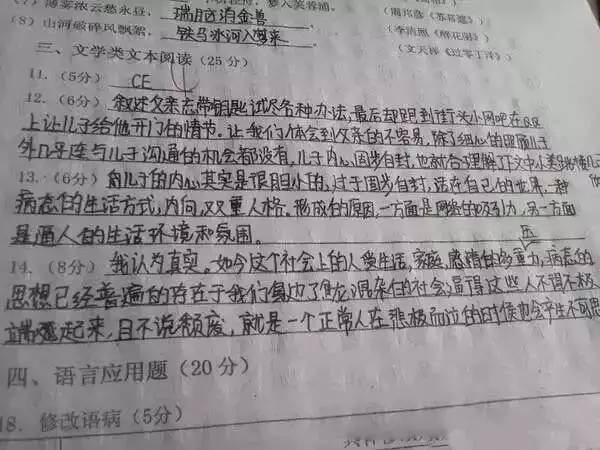 (7) 薄雾浓云愁永昼, 瑞脑消金兽 (周邦彦《苏幕遮》)
(8) 山河破碎风飘絮, 铁马冰河入梦来 (李清照《醉花阴》)
(文天祥《过零丁洋》)
三、文学类文本阅读(25分)
11. (5分) CE
12. (6分) 叙述父亲忘带钥匙试尽各种办法,最后却跑到街头小网吧在QQ
上让儿子给他开门的情节。让我们体会到父亲的不容易,除了细心的照顾儿子
外几乎连与儿子沟通的机会都没有,儿子内心固步自封,也就合了理解了文中小
13. (6分) 儿子的内心其实是很胆小的,过于固步自封,活在自己的世界,一种
病态的生活方式,内向,双重人格。形成的原因,一方面是网络的吸引力,另一方面
是逼人的生活环境和氛围。
14. (8分) 我认为真实。如今这个社会上的人受生活,家庭,感情的多重压力,病态的
思想已经普遍的存在于我们身边了,混杂的社会逼得这些人不得不极
端起来,且不说颓废,就是一个正常人在悲极而泣的时候也会产生不可思
四、语言应用题(20分)
18. 修改语病(5分)